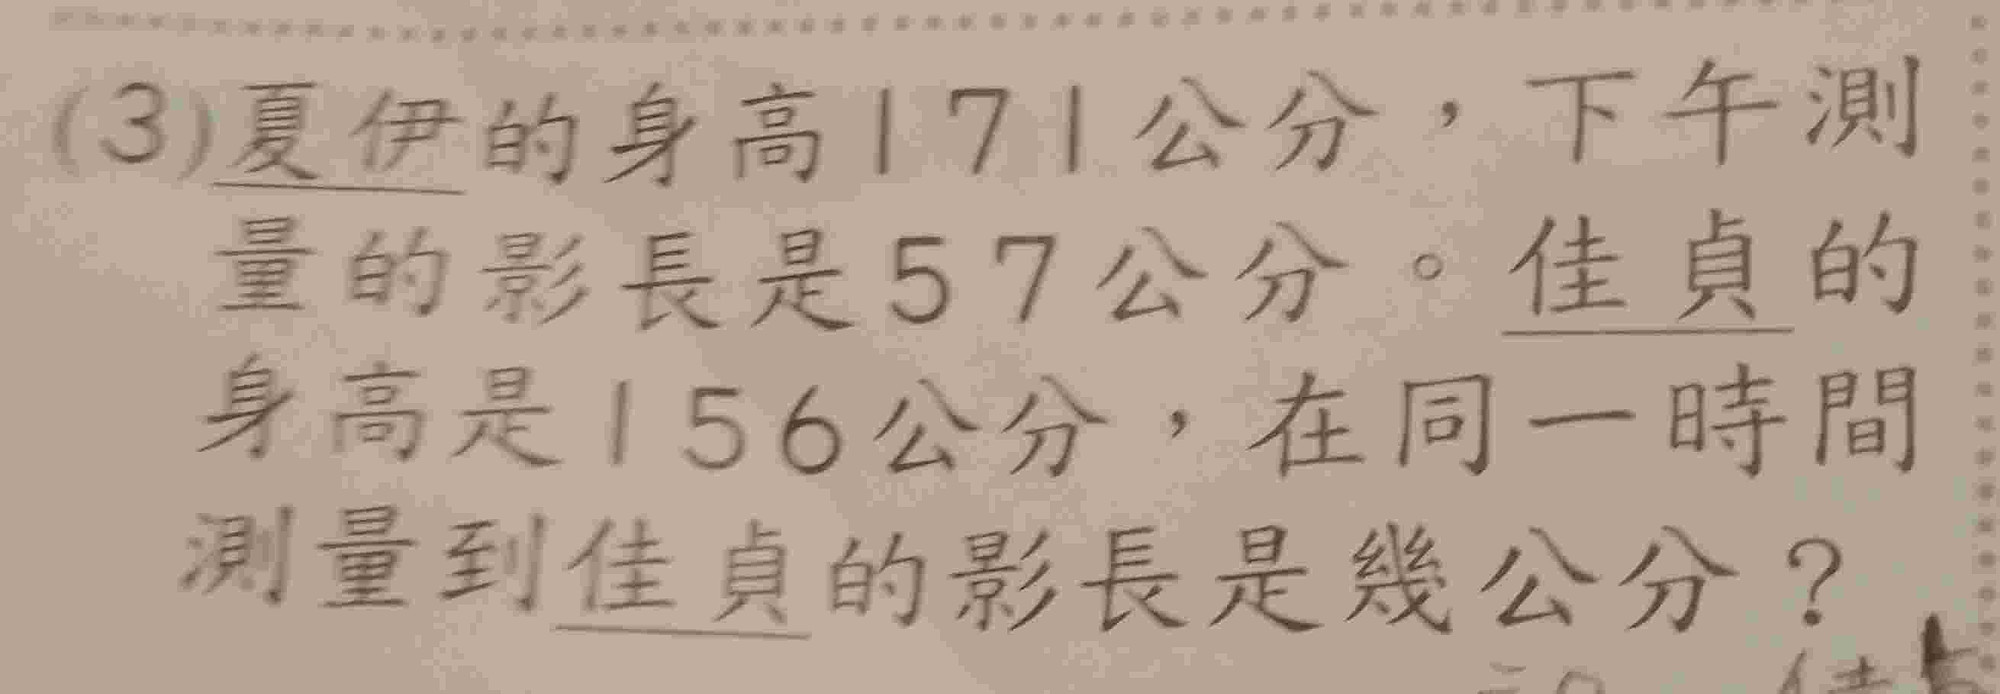 (3)夏伊的身高171公分，下午測
量的影長是57公分。佳貞的
身高是156公分，在同一時間
測量到佳貞的影長是幾公分？